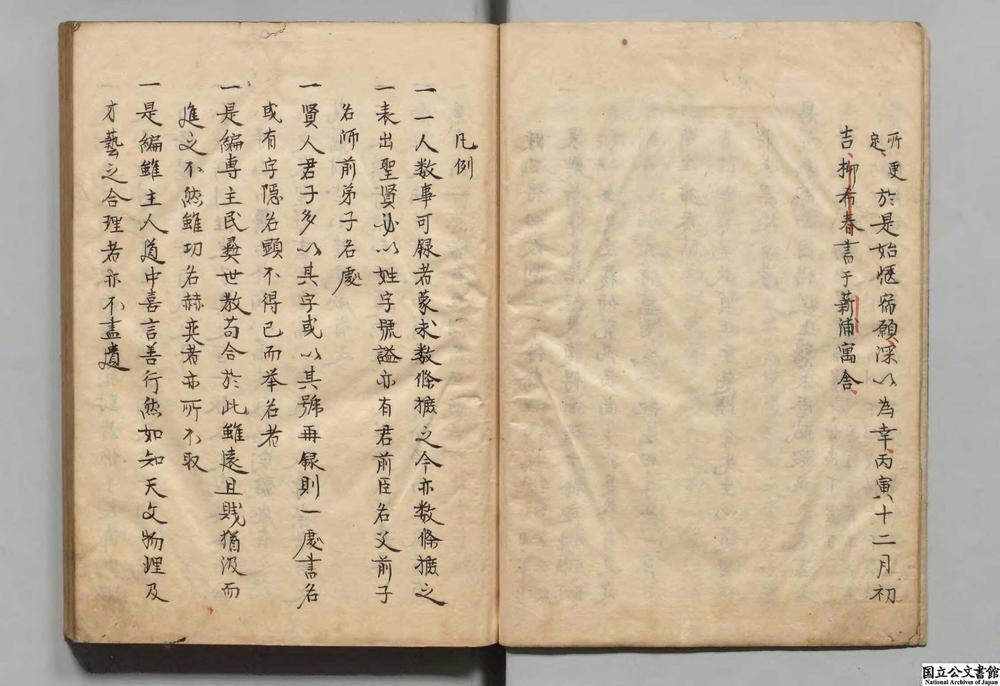 所更於是始愜宿願深以為幸丙寅十二月初
定
吉柳希春書于薪浦寓舍
凡例
一一人数事可録者蒙求数條摭之今亦数條摭之
一表出聖賢必以姓字號謚亦有君前臣名父前子
名師前弟子名處
一賢人君子多以其字或以其號再録則一處書名
或有字隠名顕不得已而挙名者
一是編専主民彜世教苟合於此雖遠且賎猶汲而
進之不然雖功名赫奕者亦所不取
一是編雖主人道中喜言善行然如知天文物理及
才藝之合理者亦不盡遺
国立公文書館
National Archives of Japan